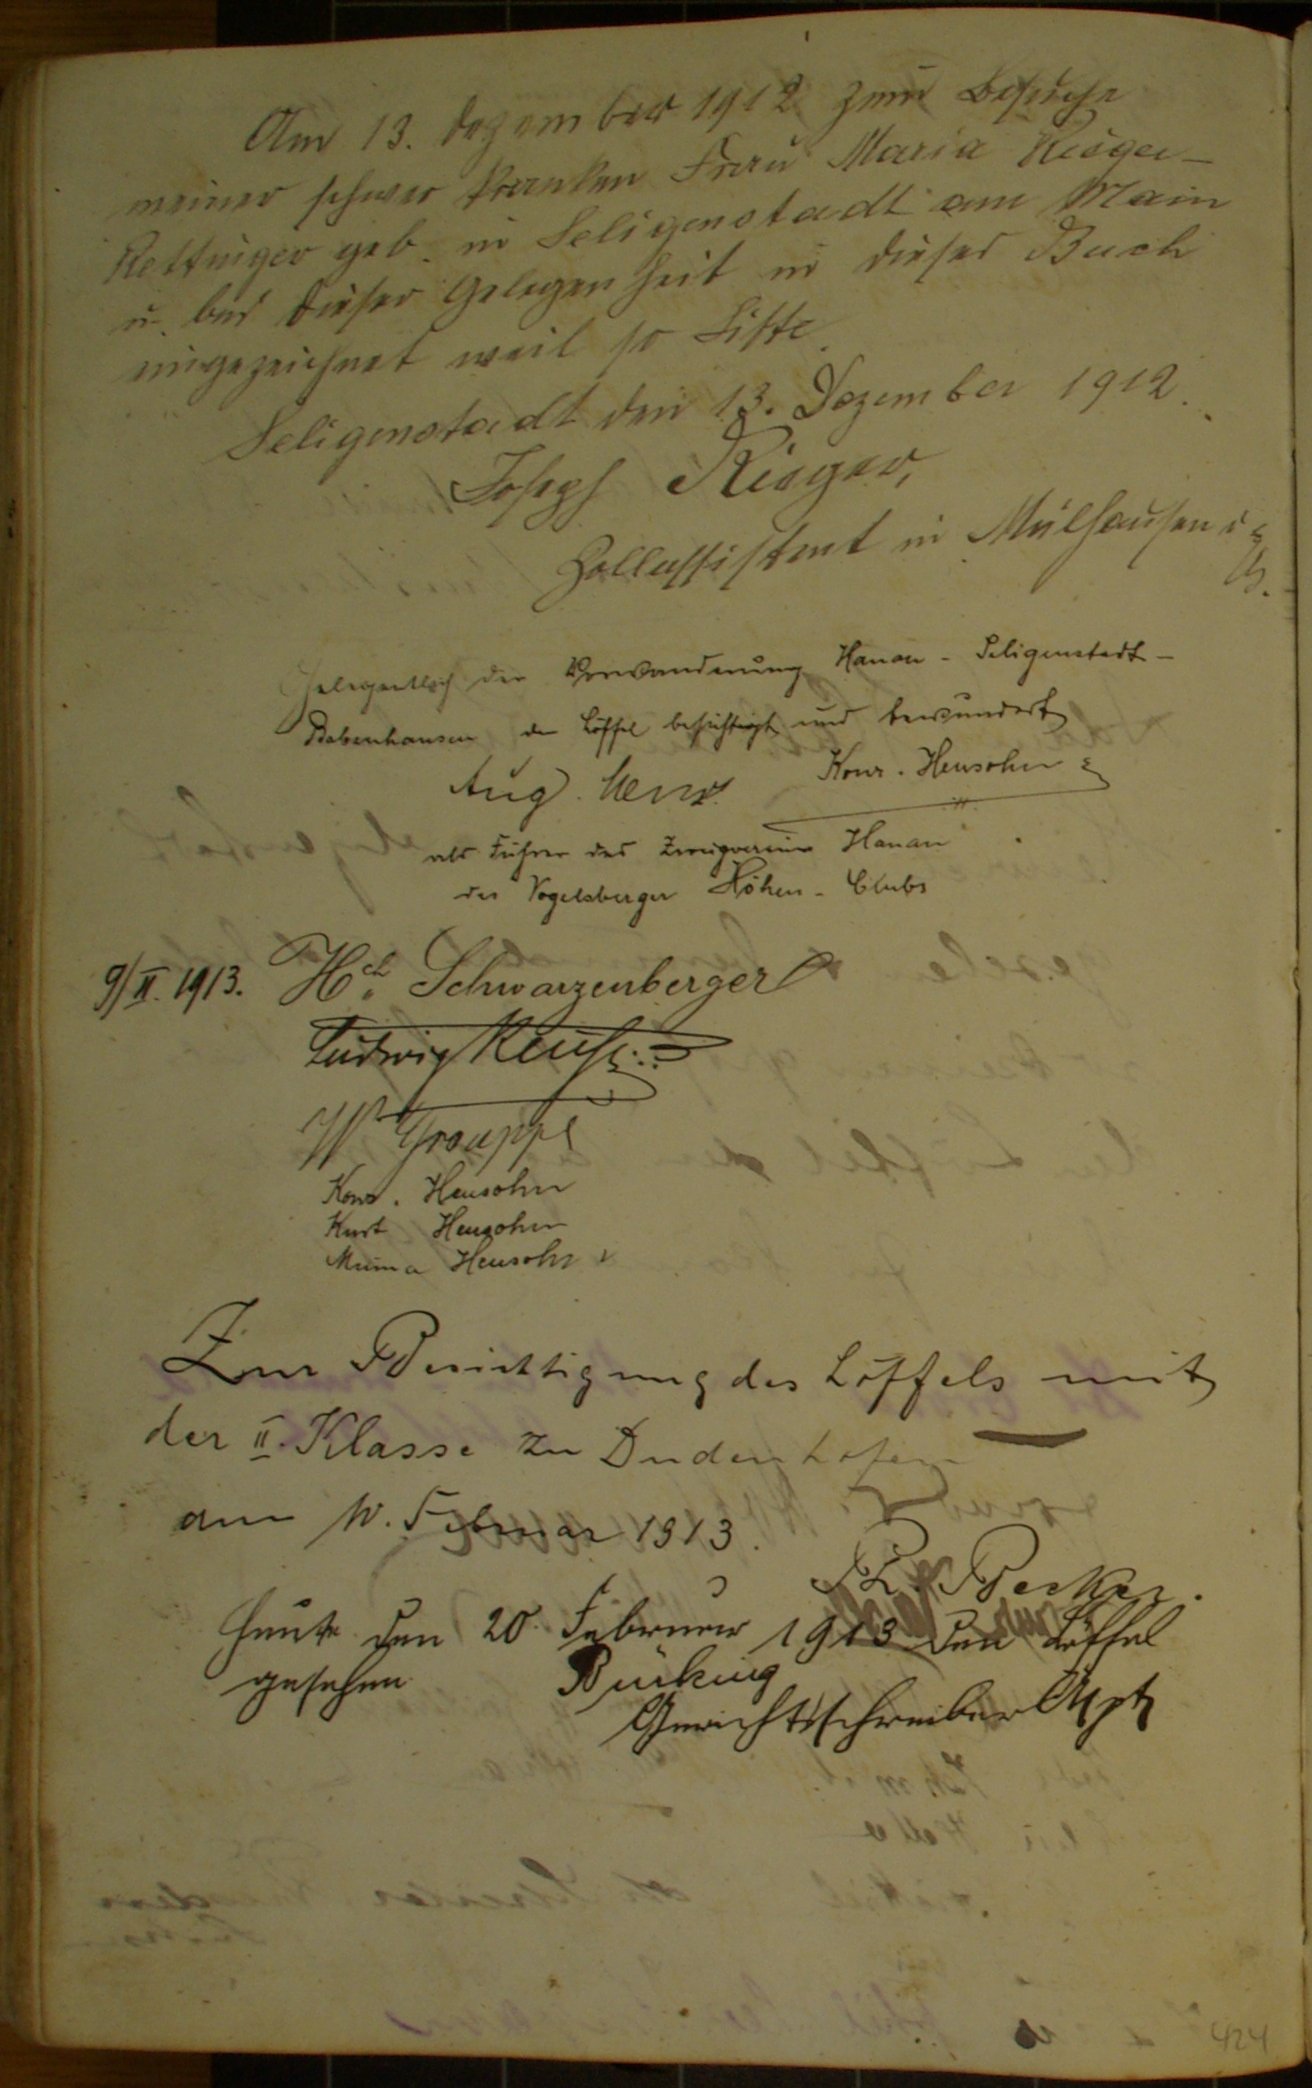 Am 13. Dezember 1912 zum Besuche
meiner schwer kranken Frau Maria Rieger-
Rettinger geb. in Seligenstadt am Main
u. bei dieser Gelegenheit in dieses Buch
eingezeichnet weil so Sitte.
Seligenstadt den 13. Dezember 1912.
Joseph Rieger,
Zollassistent in Mülhausen i/
Gelegentlich der Vorwanderung Hanau - Seligenstadt -
Babenhausen den Löffel besichtigt und bewundert
Aug. Konr. Heusohn
als Führer des Zweigvereins Hanau
des Vogelsberger Höhen-Clubs
9/II. 1913. Hch. Schwarzenberger
Ludwig
W Grouppe
Konr. Heusohn
Kurt Heusohn
Heusohn
Zur Besichtigung des Löffels mit
der II. Klasse zu Dudenhofen
am 10. Februar 1913.
Becker.
Heute den 20. Februar 1913 den Löffel
gesehen Bücking
Gerichtsschreiber
424